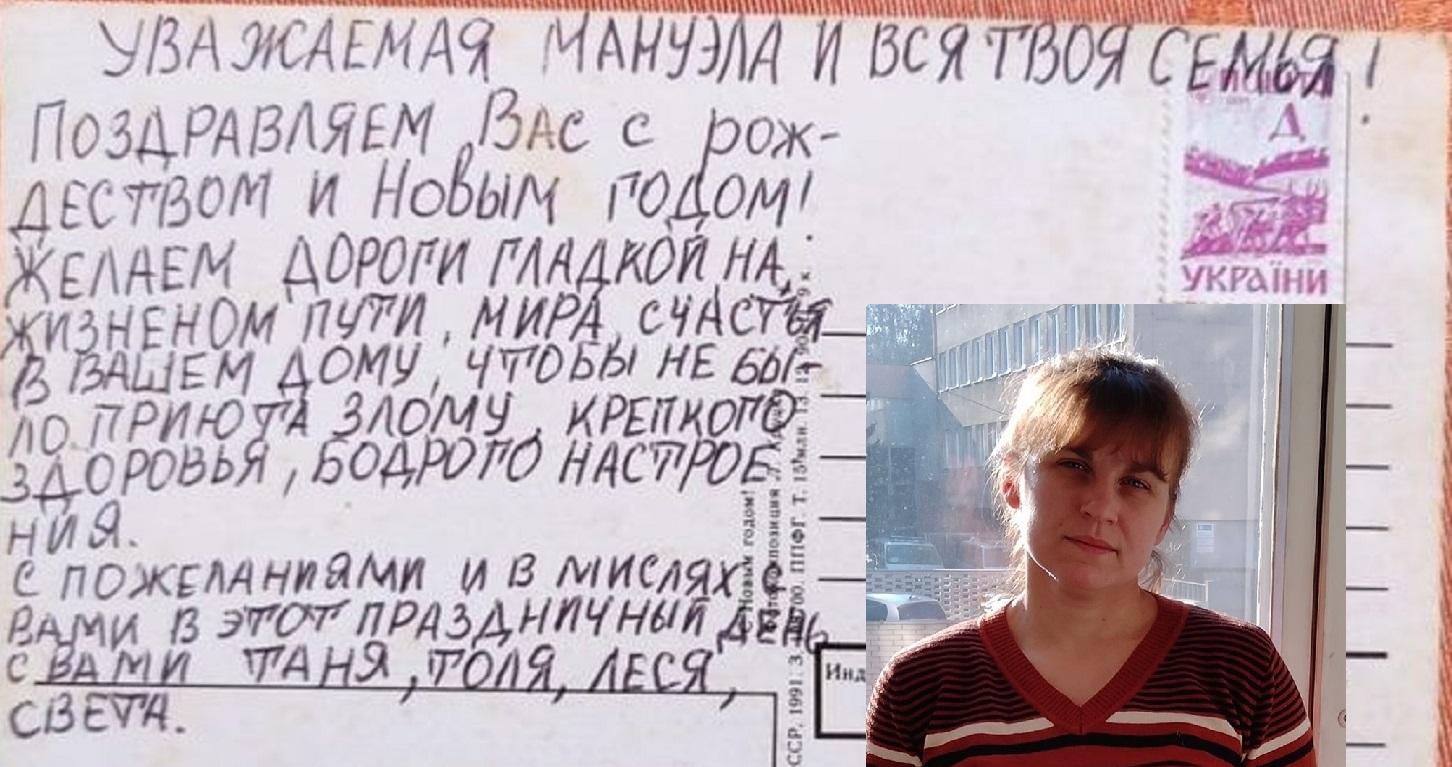 УВАЖАЕМАЯ МАНУЭЛА И ВСЯ ТВОЯ СЕМЬЯ!
ПОЗДРАВЛЯЕМ ВАС С РОЖ-
ДЕСТВОМ И НОВЫМ ГОДОМ!
ЖЕЛАЕМ ДОРОГИ ГЛАДКОЙ НА
ЖИЗНЕНОМ ПУТИ, МИРА, СЧАСТЬЯ
В ВАШЕМ ДОМУ, ЧТОБЫ НЕ БЫ-
ЛО ПРИЮТА ЗЛОМУ, КРЕПКОГО
ЗДОРОВЬЯ, БОДРОГО НАСТРОЕ-
НИЯ.
С ПОЖЕЛАНИЯМИ И В МИСЛЯХ С
ВАМИ В ЭТОТ ПРАЗДНИЧНЫЙ ДЕНЬ
С ВАМИ ТАНЯ, ТОЛЯ, ЛЕСЯ,
СВЕТА.
ПОШТА
Д
УКРАЇНИ
Новым годом!
ССР, 1991. ППФГ. Т. 15 млн.
Инд